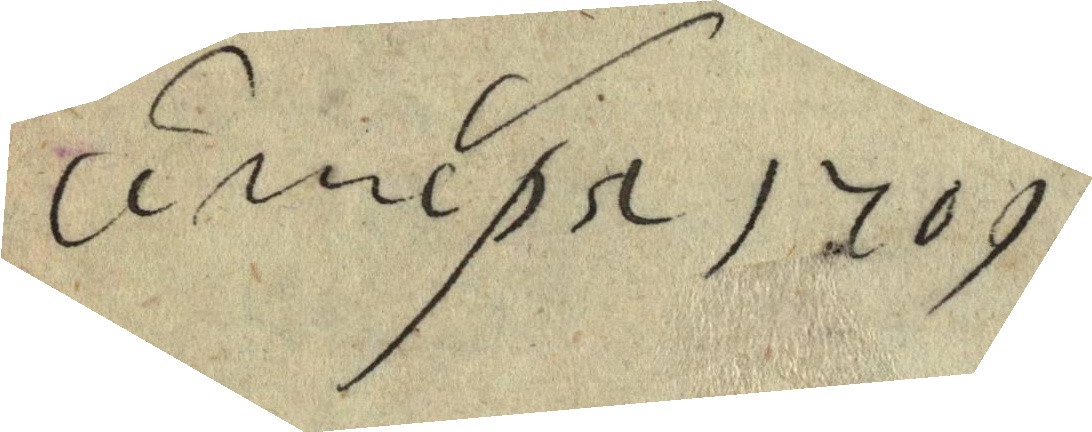 сентебря 1709